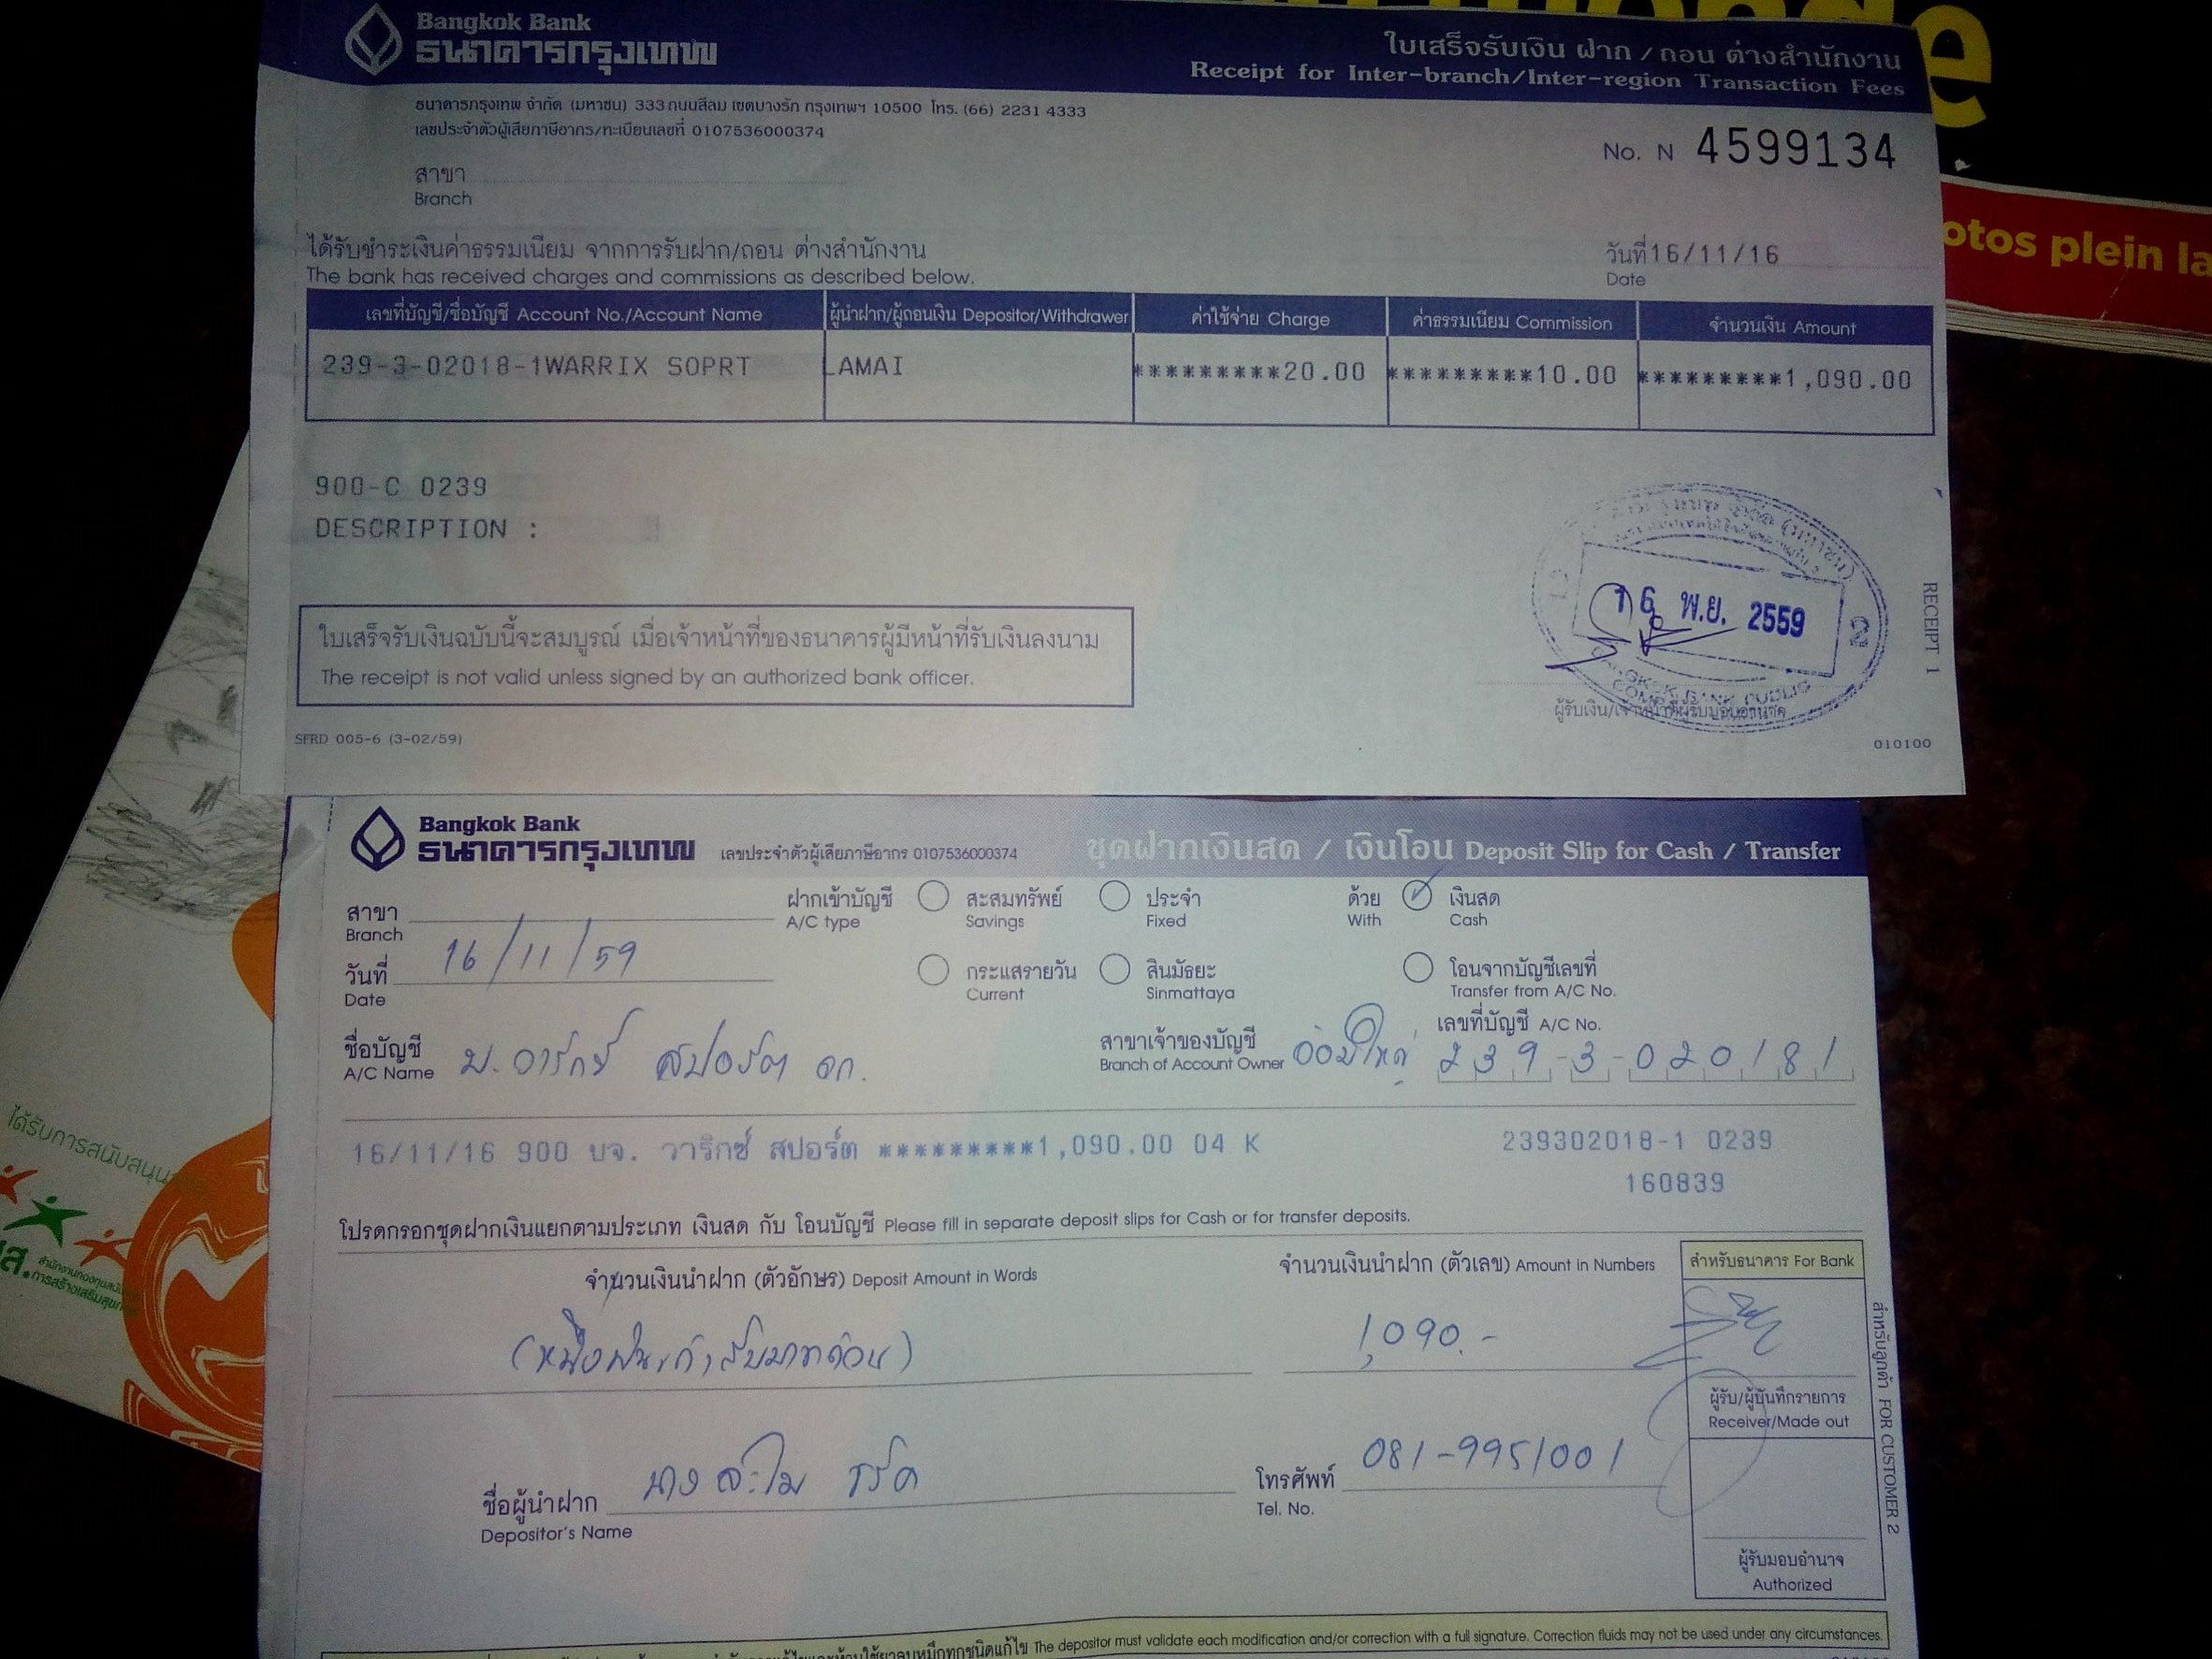 Bangkok Bank
ธนาคารกรุงเทพ
ใบเสร็จรับเงิน ฝาก / ถอน ต่างสำนักงาน
Receipt for Inter-branch/Inter-region Transaction Fees
ธนาคารกรุงเทพ จำกัด (มหาชน) 333 ถนนสีลม เขตบางรัก กรุงเทพฯ 10500 โทร. (66) 2231 4333
เลขประจำตัวผู้เสียภาษีอากร/ทะเบียนเลขที่ 0107536000374
No. N 4599134
สาขา
Branch
ได้รับชำระเงินค่าธรรมเนียม จากการรับฝาก/ถอน ต่างสำนักงาน
The bank has received charges and commissions as described below.
วันที่ 16/11/16
Date
เลขที่บัญชี/ชื่อบัญชี Account No./Account Name ผู้นำฝาก/ผู้ถอนเงิน Depositor/Withdrawer ค่าใช้จ่าย Charge ค่าธรรมเนียม Commission จำนวนเงิน Amount
239-3-02018-1WARRIX SOPRT LAMAI *********20.00 *********10.00 *********1,090.00
900-C 0239
DESCRIPTION :
16 พ.ย. 2559
RECEIPT 1
ใบเสร็จรับเงินฉบับนี้จะสมบูรณ์ เมื่อเจ้าหน้าที่ของธนาคารผู้มีหน้าที่รับเงินลงนาม
The receipt is not valid unless signed by an authorized bank officer.
SFRD 005-6 (3-02/59)
010100
otos plein la
Bangkok Bank
ธนาคารกรุงเทพ
เลขประจำตัวผู้เสียภาษีอากร 0107536000374
ชุดฝากเงินสด / เงินโอน Deposit Slip for Cash / Transfer
สาขา
Branch
ฝากเข้าบัญชี
A/C type
สะสมทรัพย์
Savings
ประจำ
Fixed
ด้วย
With
เงินสด
Cash
วันที่ 16/11/59
Date
กระแสรายวัน
Current
สินมัธยะ
Sinmattaya
โอนจากบัญชีเลขที่
Transfer from A/C No.
ชื่อบัญชี
A/C Name
สปอร์ต จก.
สาขาเจ้าของบัญชี
Branch of Account Owner
อ้อมใหญ่
เลขที่บัญชี A/C No.
239-3-020181
16/11/16 900 บจ. วาริกซ์ สปอร์ต *********1,090.00 04 K 239302018-1 0239
160839
โปรดกรอกชุดฝากเงินแยกตามประเภท เงินสด กับ โอนบัญชี Please fill in separate deposit slips for Cash or for transfer deposits.
จำนวนเงินนำฝาก (ตัวอักษร) Deposit Amount in Words
จำนวนเงินนำฝาก (ตัวเลข) Amount in Numbers
สำหรับธนาคาร For Bank
(หนึ่งพันเก้าสิบบาทถ้วน)
1,090.-
ผู้รับ/ผู้บันทึกรายการ
Receiver/Made out
ชื่อผู้นำฝาก นาง ละไม
Depositor's Name
โทรศัพท์ 081-9951001
Tel. No.
ผู้รับมอบอำนาจ
Authorized
สำหรับลูกค้า FOR CUSTOMER 2
The depositor must validate each modification and/or correction with a full signature. Correction fluids may not be used under any circumstances.
ได้รับการสนับสนุน